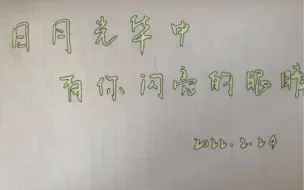 日月光华中
有你闪亮的眼睛
2022.2.24